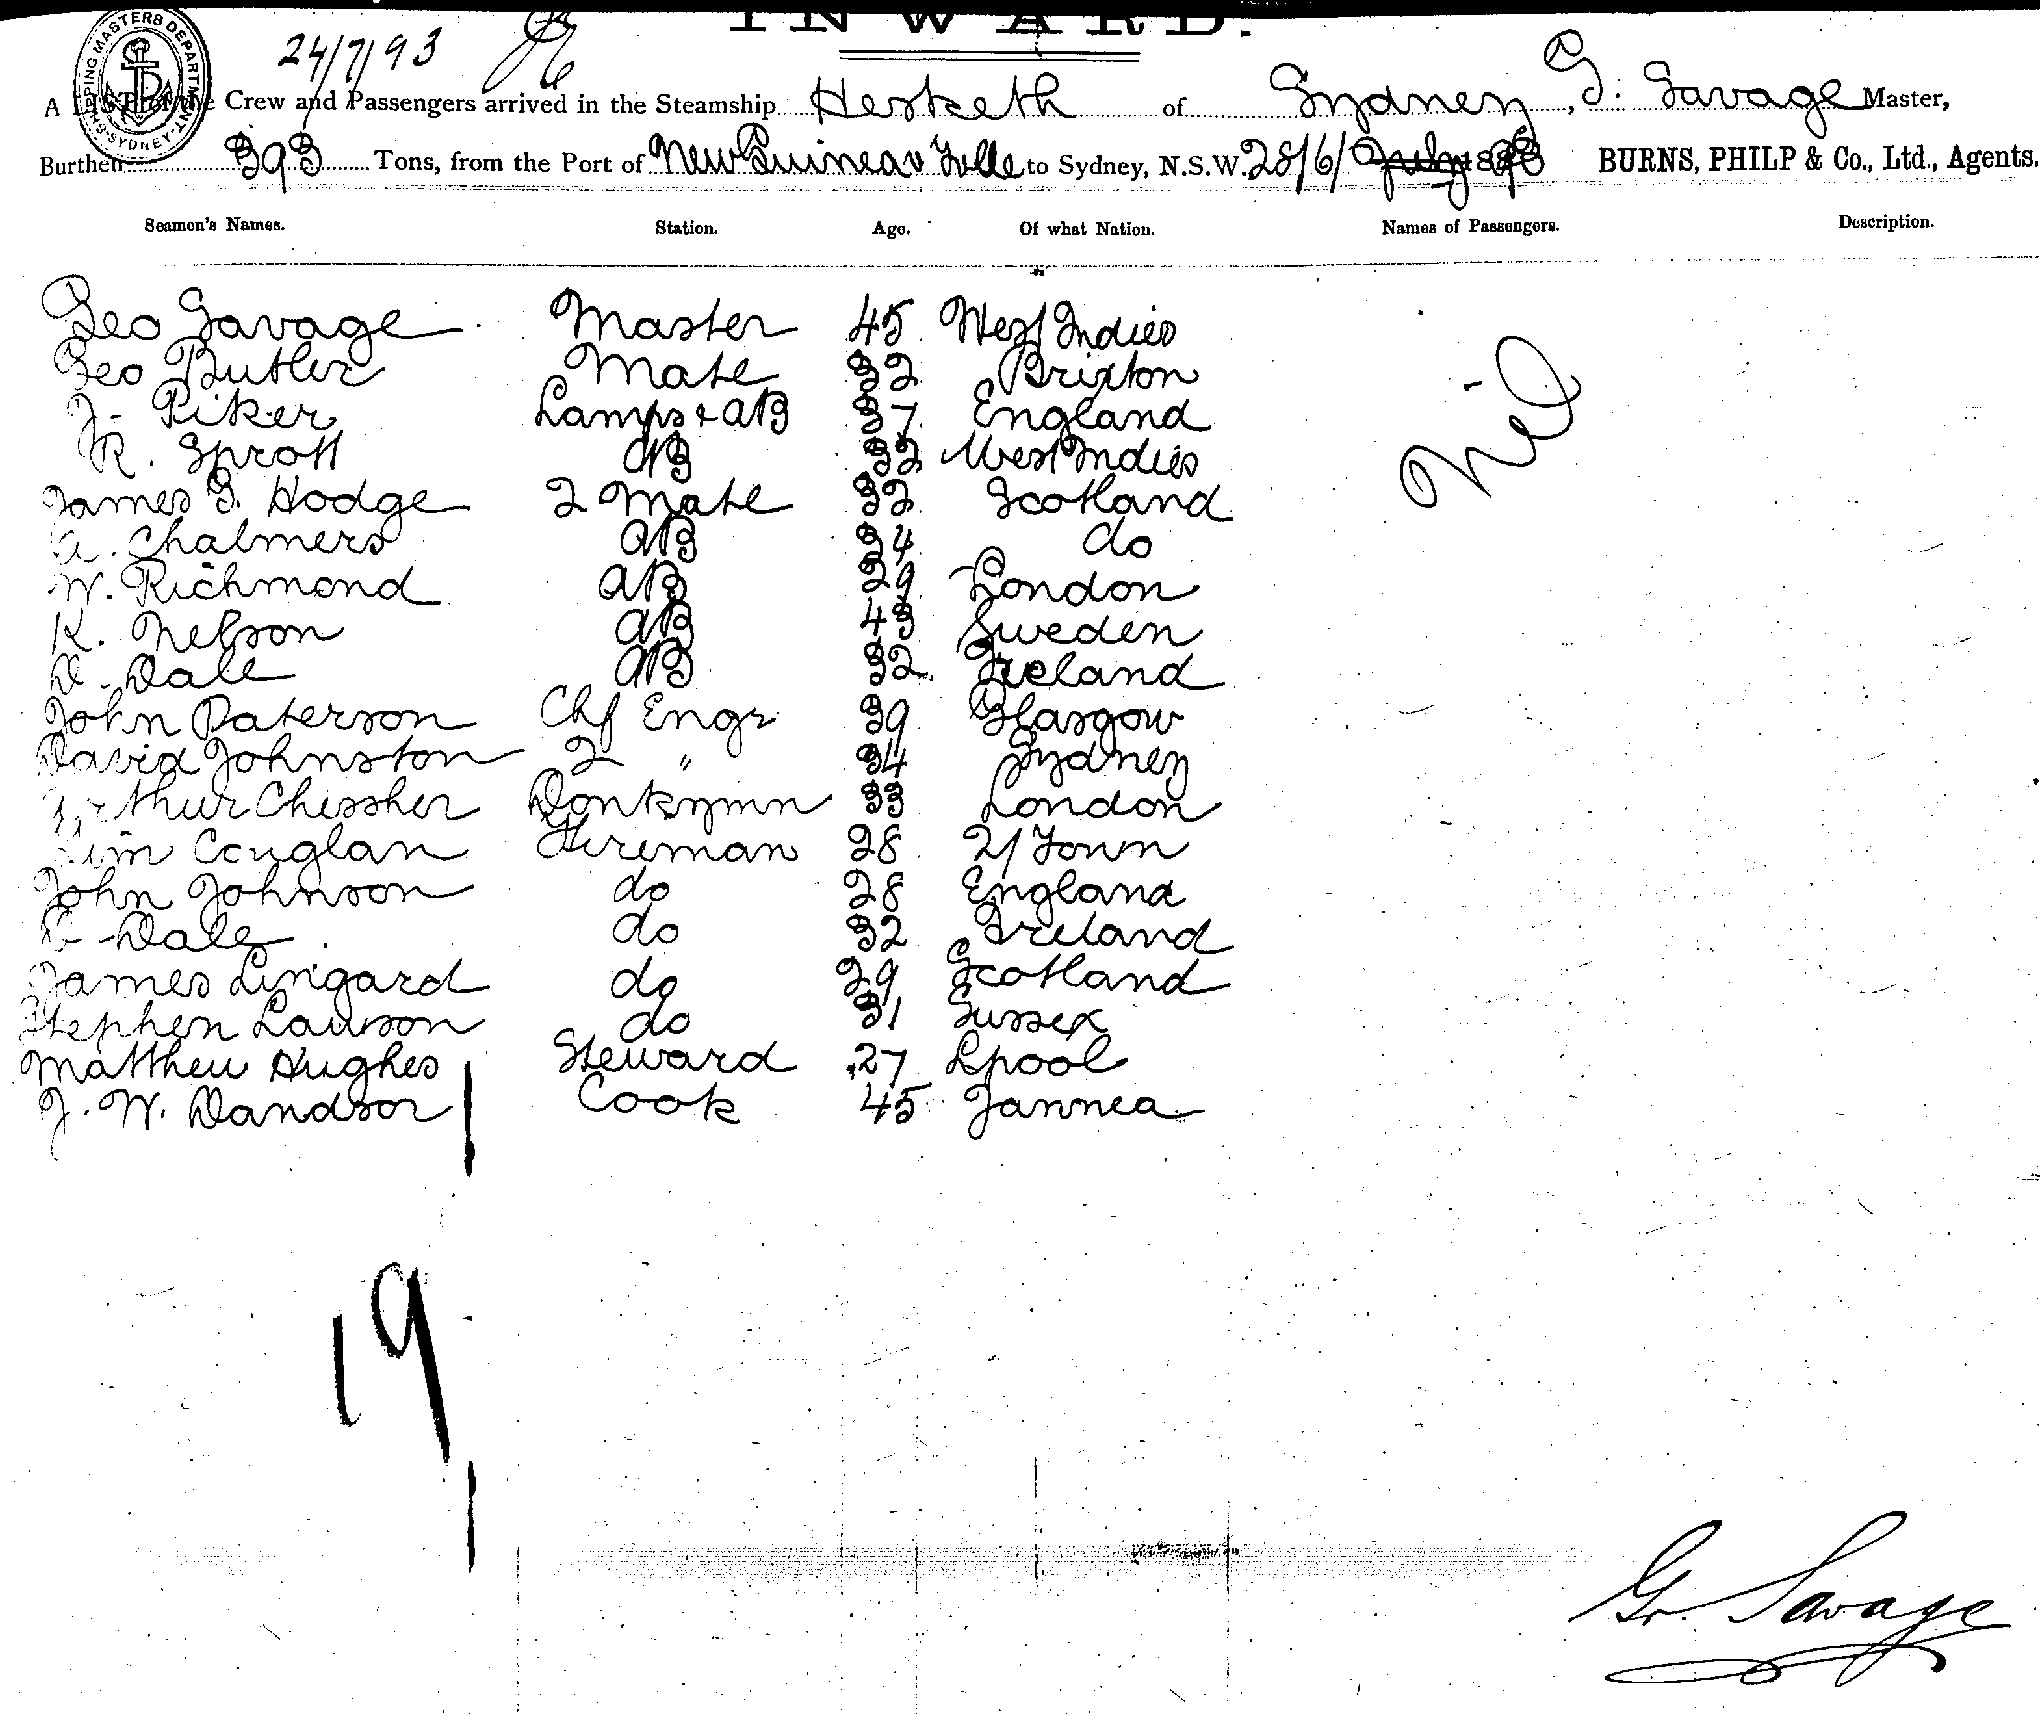 INWARD.
SHIPPING MASTERS DEPARTMENT SYDNEY
24/7/93
A LIST of the Crew and Passengers arrived in the Steamship Hesketh of Sydney, G. Savage Master,
Burthen 393 Tons, from the Port of New Guinea v Tville to Sydney, N.S.W. 28/6/ BURNS, PHILP & Co., Ltd., Agents.
Seamen's Names. Station. Age. Of what Nation. Names of Passengers. Description.
Geo Savage Master 45 West Indies
Geo Butler Mate 32 Brixton
J. Piker Lamps & AB 37 England
R. Sprott AB 32 West Indies
James G. Hodge 2 Mate 32 Scotland
A. Chalmers AB 34 do
W. Richmond AB 29 London
K. Nelson AB 43 Sweden
D. Dale AB 32 Ireland
John Paterson Chf Engr 39 Glasgow
David Johnston 2 " 34 Sydney
Arthur Chissher Donkymn 33 London
Couglan Fireman 28 Town
John Johnson do 28 England
Dale do 32 Ireland
James Lingard do 29 Scotland
Stephen Lawson do 31 Sussex
Matthew Hughes Steward 27 Lpool
J. W. Davidson Cook 45 Jannea
Nil
19
G. Savage